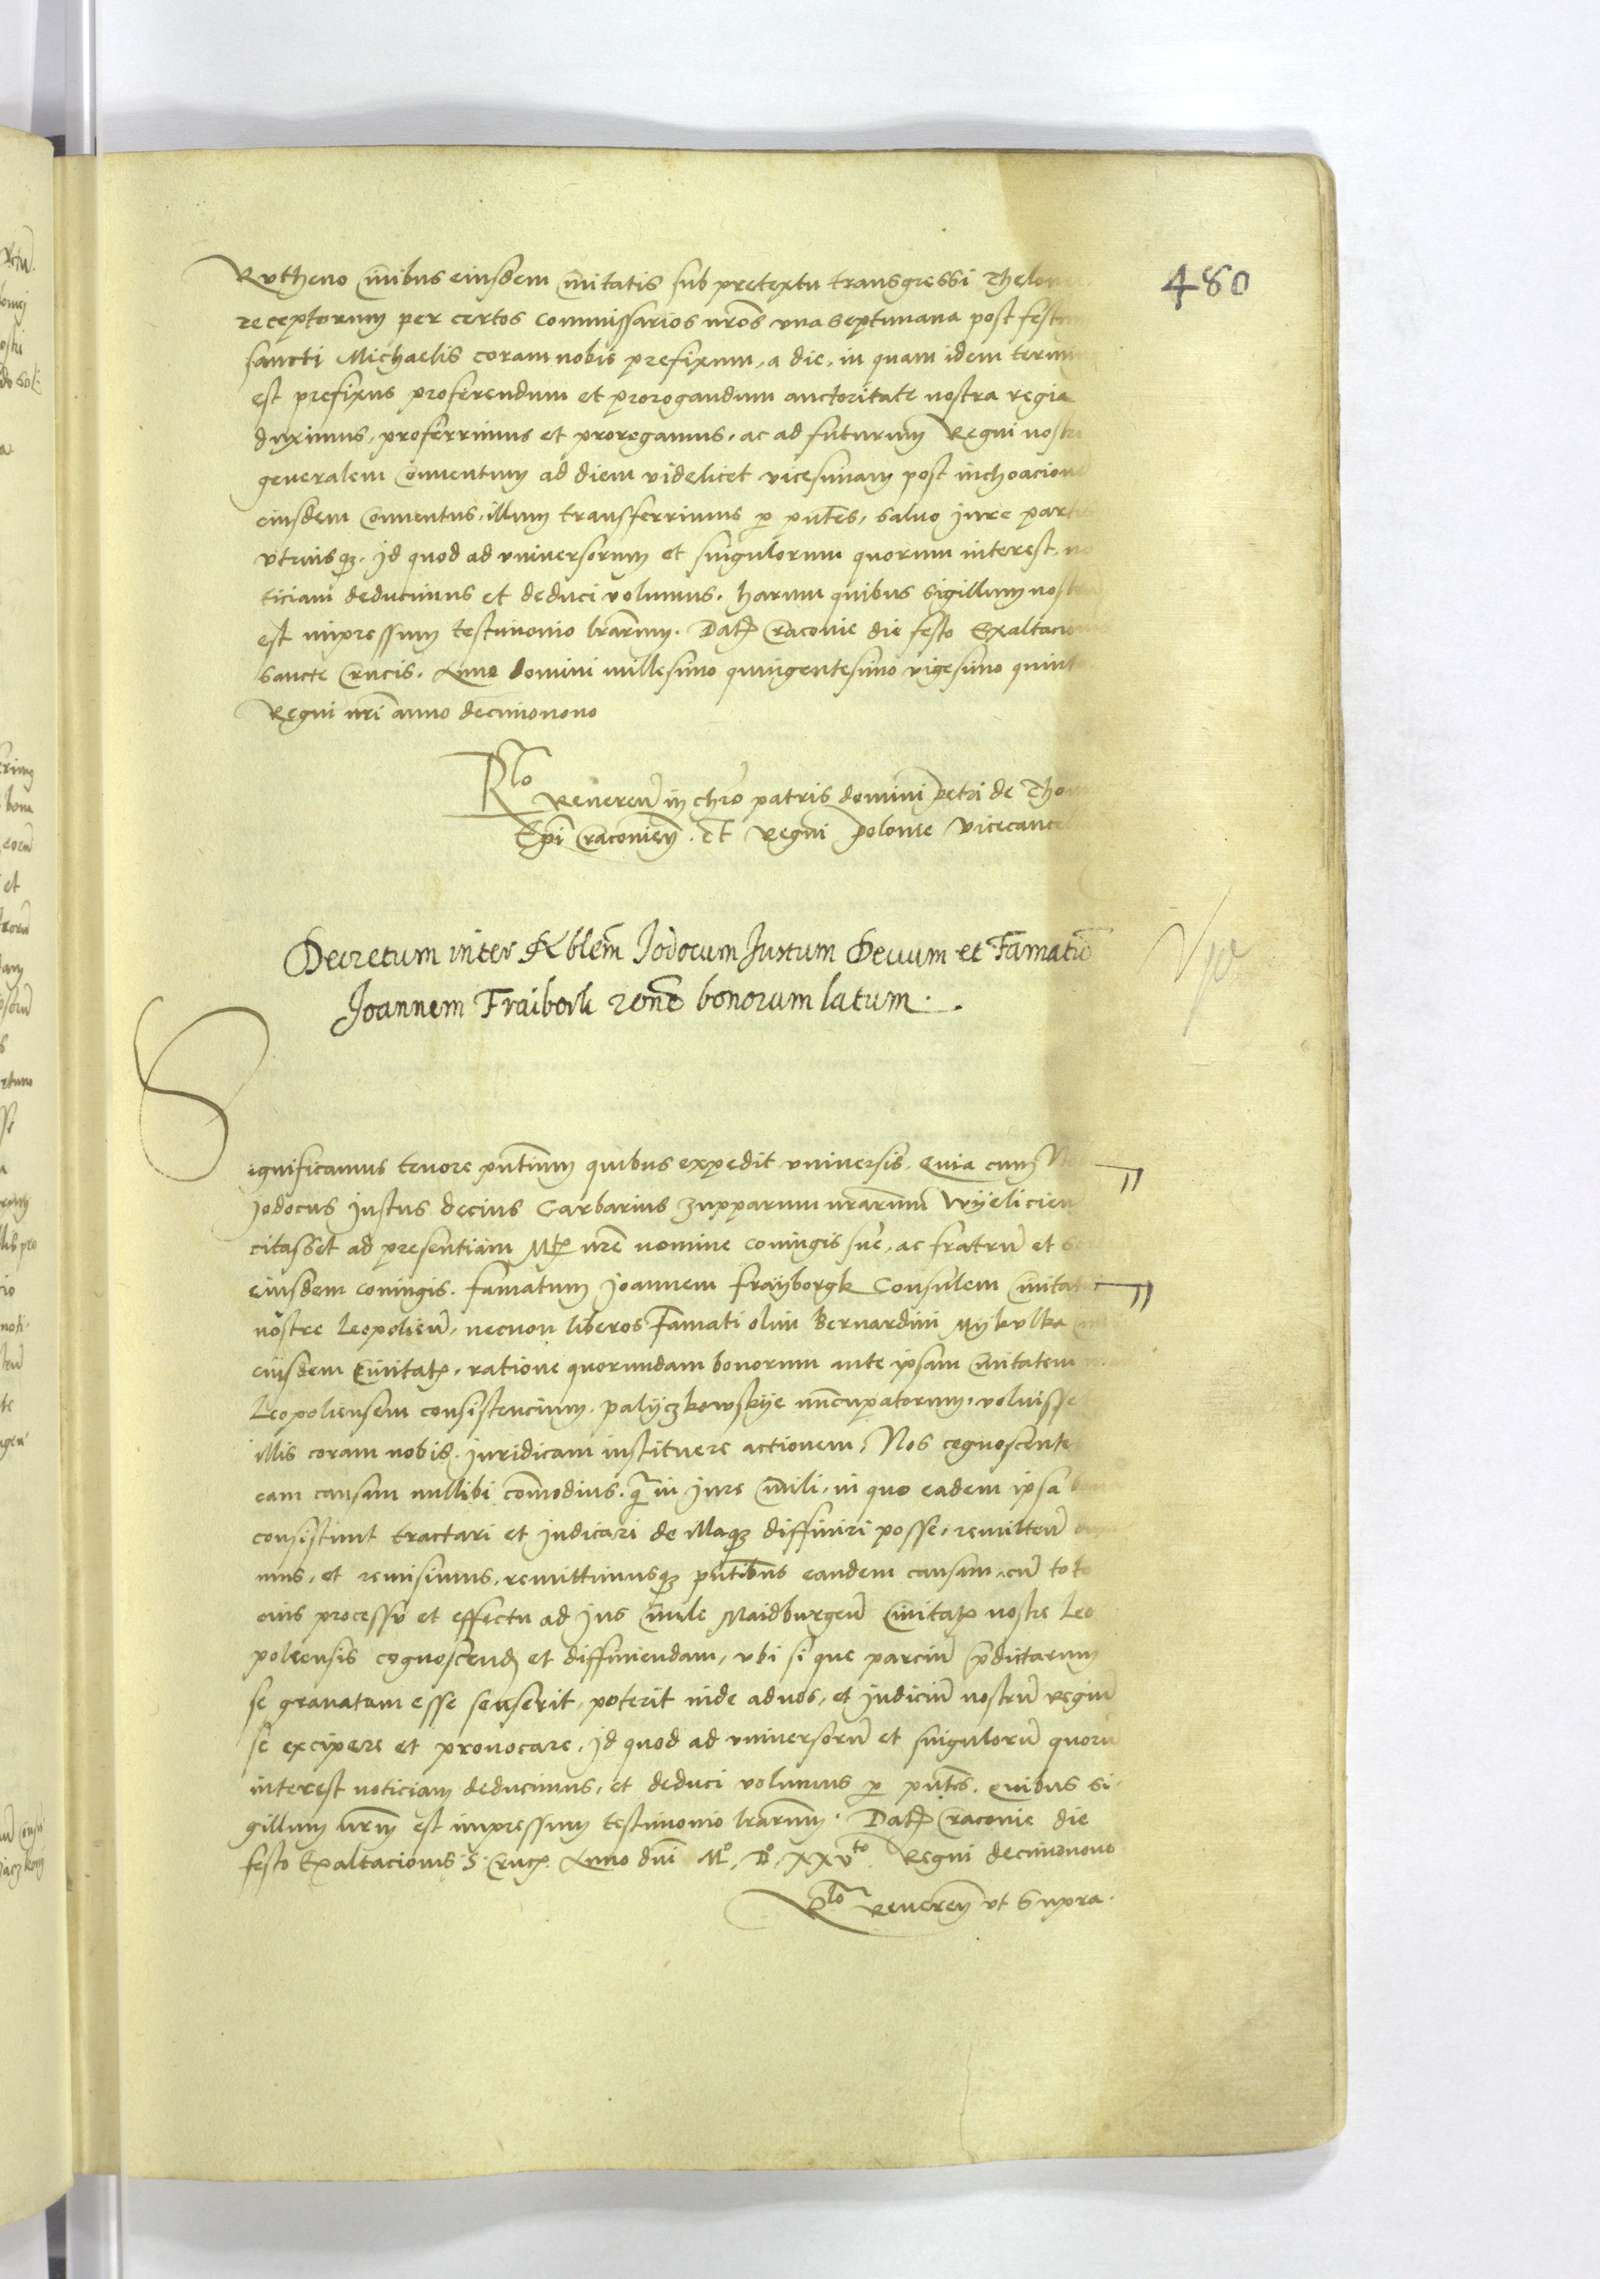 480
Rutheno civibus eiusdem civitatis sub pretextu transgressi Thelonei
receptorum per certos commissarios nros una septimana post festum
sancti Michaelis coram nobis prefixum, a die, in quam idem terminus
est prefixus proferendum et prorogandum auctoritate nostra regia
duximus, proferrimus et prorogamus, ac ad futurum Regni nostri
generalem conventum ad diem videlicet vicesimam post inchoacionem
eiusdem conventus, illum transferrimus p pntes, salvo jure partis
utriusqz. Id quod ad universorum et singulorum quorum interest no
ticiam deducimus et deduci volumus. harum quibus sigillum nostrum
est impressum testimonio lrarum. Dat Cracovie die festo Exaltacionis
sancte Crucis. Anno domini millesimo quingentesimo vigesimo quinto
Regni nri anno decimonono
Rlo
Reveren in chro patris domini Petri de
Epi Cracovien. et Regni Polonie vicecancel
Decretum inter Nblem Jodocum Justum Decium et Famatu
Joannem Fraibork rone bonorum latum.
Significamus tenore pntium quibus expedit universis. Quia cum
Jodocus Justus decius Carbarius zupparum nrarum Wyelicien
citasset ad presentiam Mtis nre nomine coniugis sue, ac fratru et
eiusdem coniugis. famatum Joannem Frayborgk Consulem civitatis
nostre Leopolien, necnon liberos Famati olim Bernardini Mykulka
eiusdem Civitatis, ratione quorundam bonorum ante ipsam civitatem
Leopoliensem consistencium, palyczkowskye nuncupatorum, voluisse
illis coram nobis, juridicam instituere actionem, Nos cognoscentes
eam causam nullibi comodius, q in jure civili, in quo eadem ipsa bona
consistunt tractari et judicari de illaqz diffiniri posse, remitten
mus, et remisimus, remittimusqz pntibus eandem causam, cu toto
eius processu et effectu ad jus civile Maidburgen civitatis nostre Leo
poliensis cognoscend et diffiniendam, ubi si que parciu pdictarum
se gravatam esse senserit, poterit inde ad nos, et judiciu nostru regiu
se excipere et provocare, Id quod ad universoru et singuloru quoru
interest noticiam deducimus, et deduci volumus p pntes. Quibus si
gillum nrum est impressum testimonio lrarum. Dat Cracovie die
festo Exaltacionis S. Crucis. Anno dni Mo. Do. XXVto. Regni decimonono
Rlo Reveren ut supra.